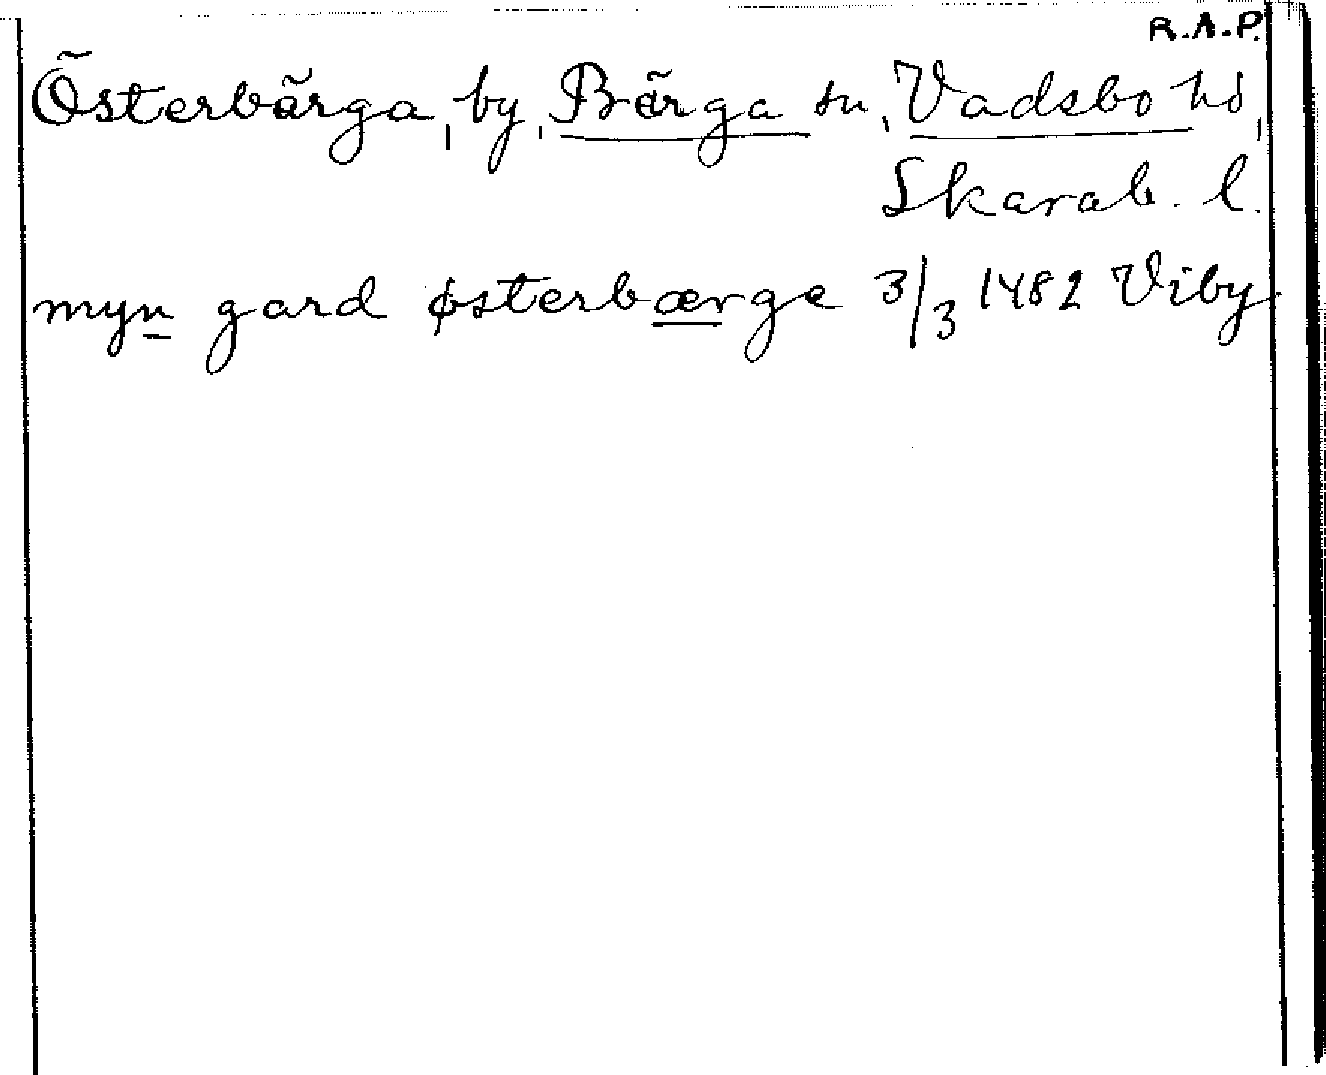 R.A.P.
Österbärga, by, Bärga sn, Vadsbo hd,
Skarab. l.
myn gard østerbærge 3/3 1482 Viby